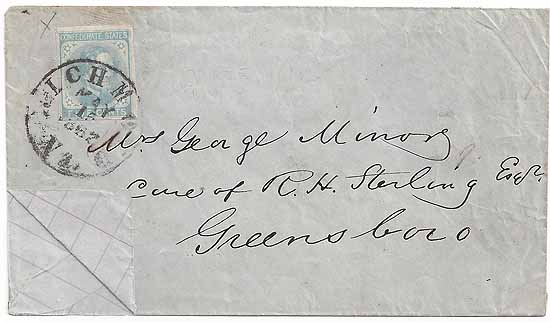 CONFEDERATE STATES
RICHM
MAY
1862
Mrs George Minor
care of R. H. Sterling Esqr.
Greensboro